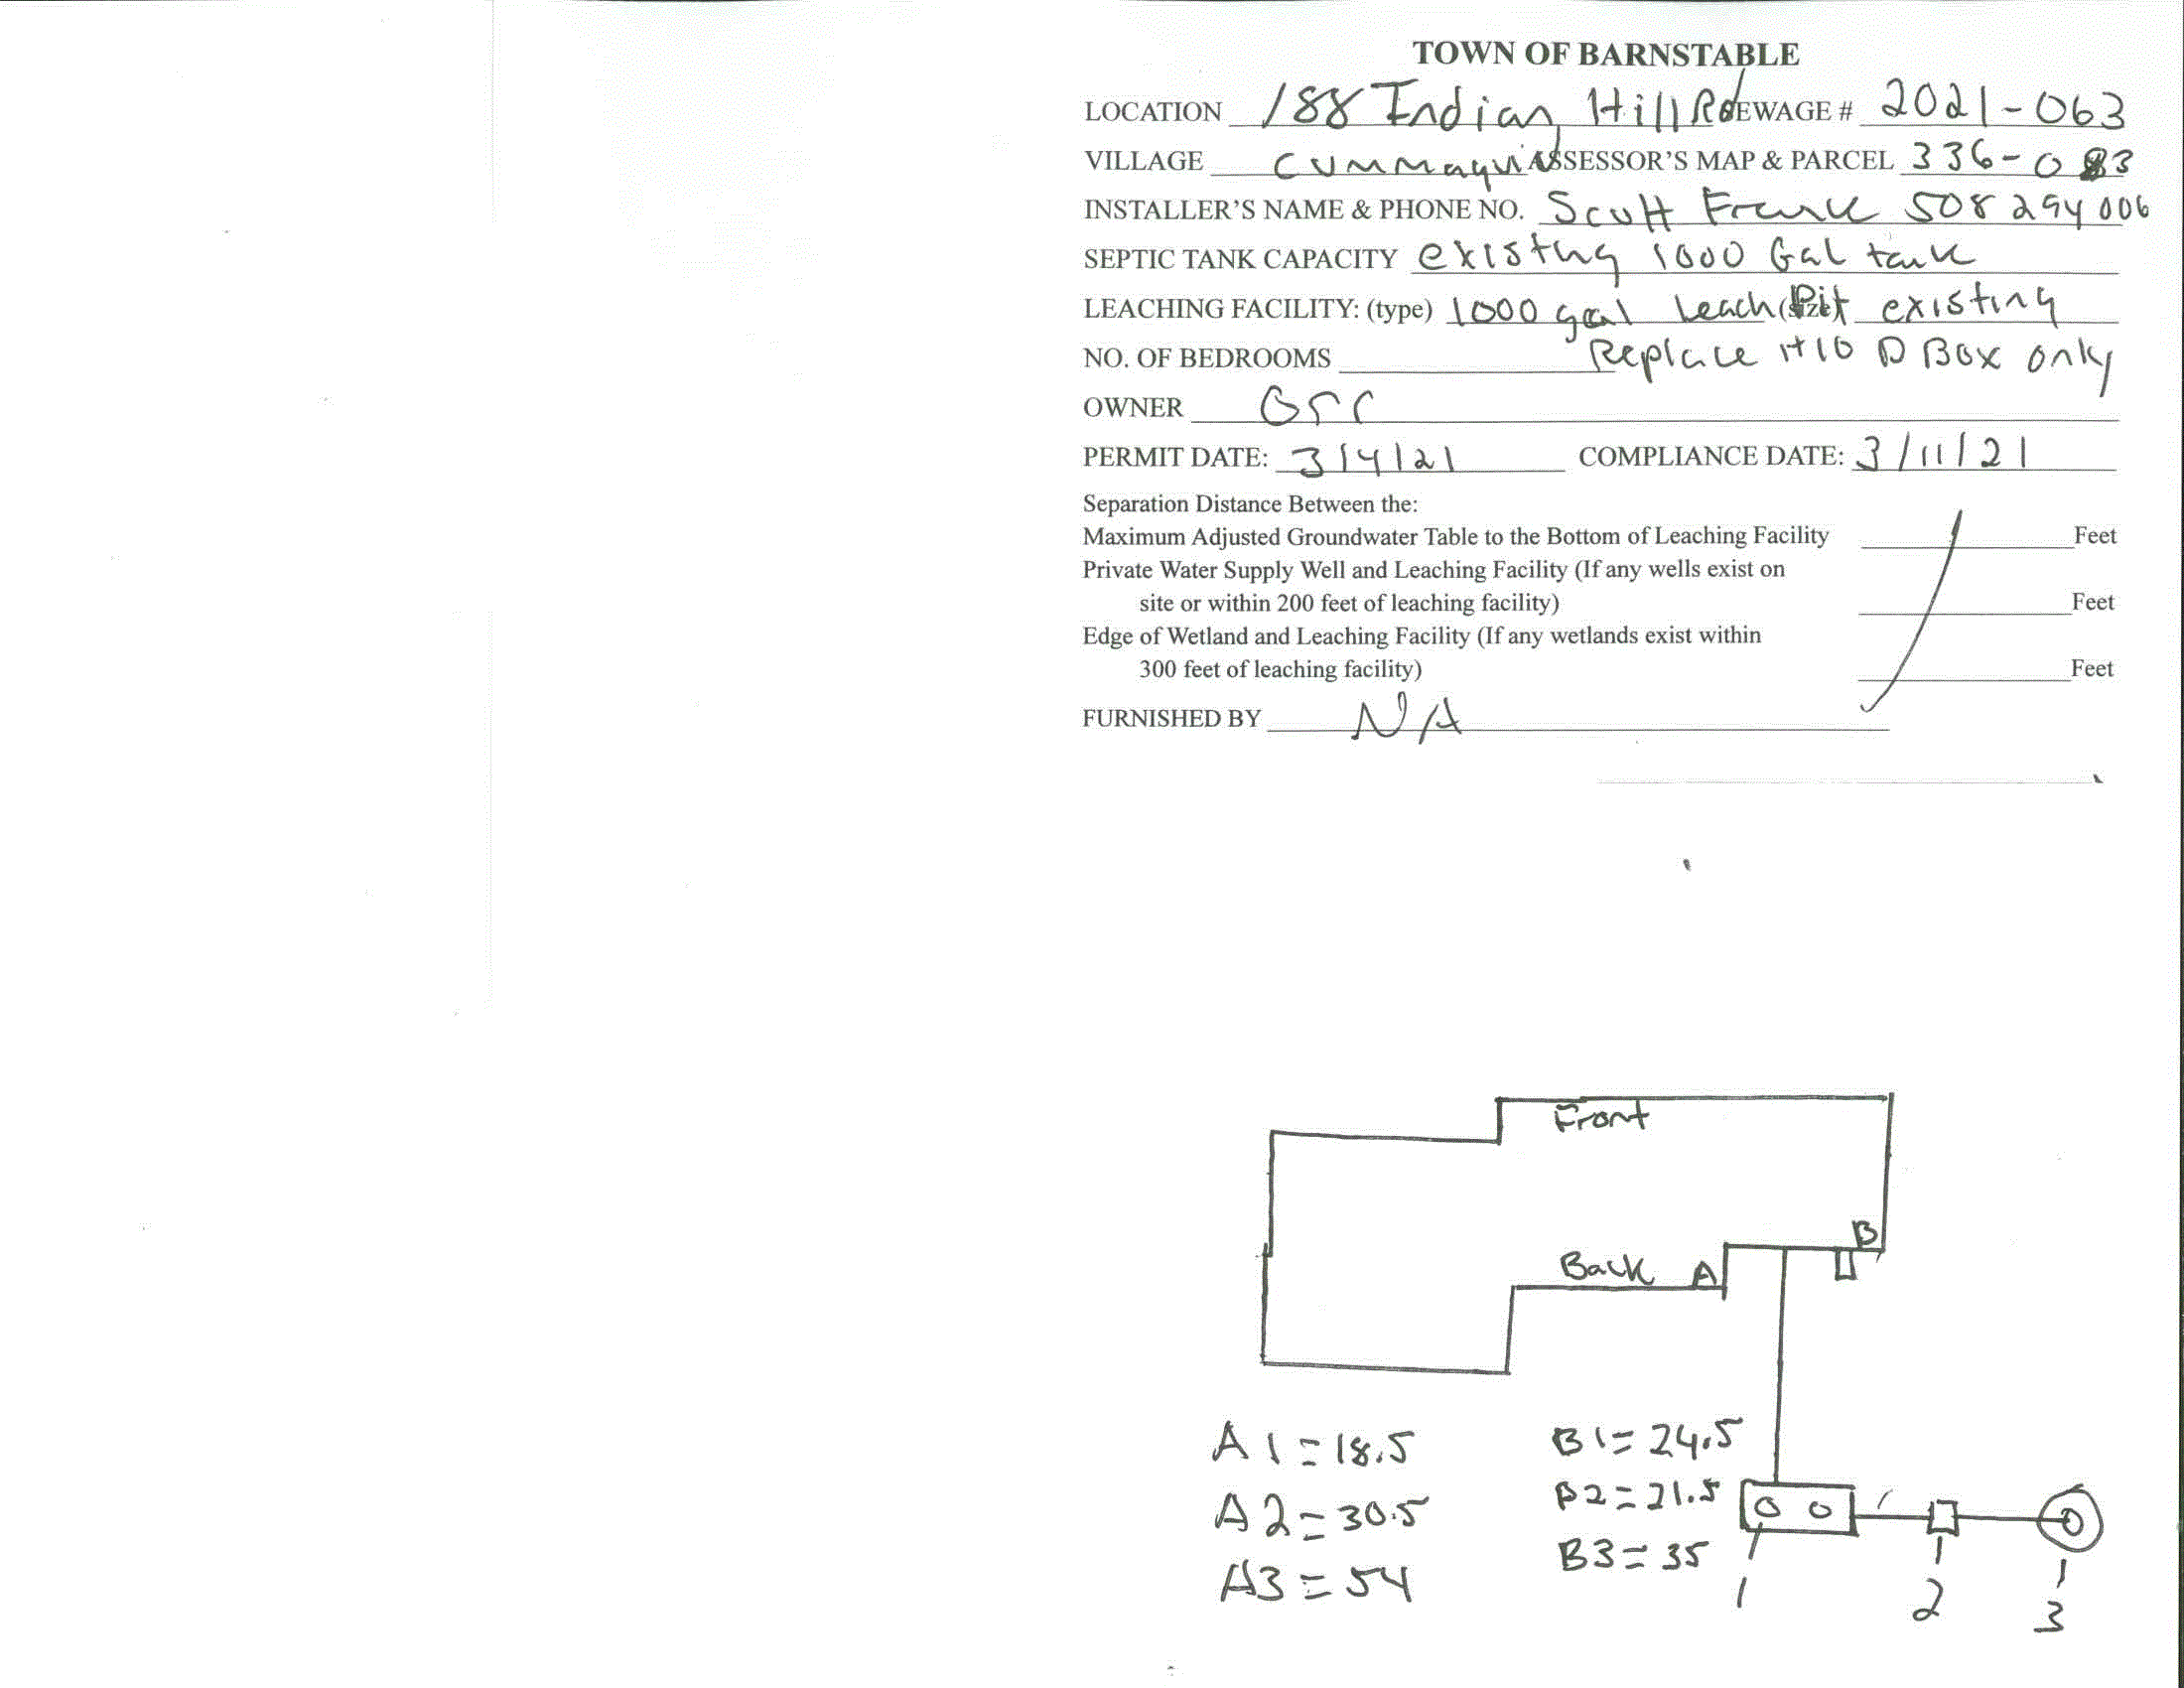 TOWN OF BARNSTABLE
LOCATION 188 Indian Hill Rd SEWAGE # 2021-063
VILLAGE Cummaquid ASSESSOR'S MAP & PARCEL 336-083
INSTALLER'S NAME & PHONE NO. Scott Frank 508 294 006
SEPTIC TANK CAPACITY existing 1000 Gal tank
LEACHING FACILITY: (type) 1000 gal Leach (size) Pit existing
NO. OF BEDROOMS Replace H10 D Box only
OWNER Orr
PERMIT DATE: 3/4/21 COMPLIANCE DATE: 3/11/21
Separation Distance Between the:
Maximum Adjusted Groundwater Table to the Bottom of Leaching Facility Feet
Private Water Supply Well and Leaching Facility (If any wells exist on
site or within 200 feet of leaching facility) Feet
Edge of Wetland and Leaching Facility (If any wetlands exist within
300 feet of leaching facility) Feet
FURNISHED BY NA
Front
B
Back A
A1=18.5 B1=24.5
A2=30.5 B2=21.5
A3=54 B3=35
1 2 3